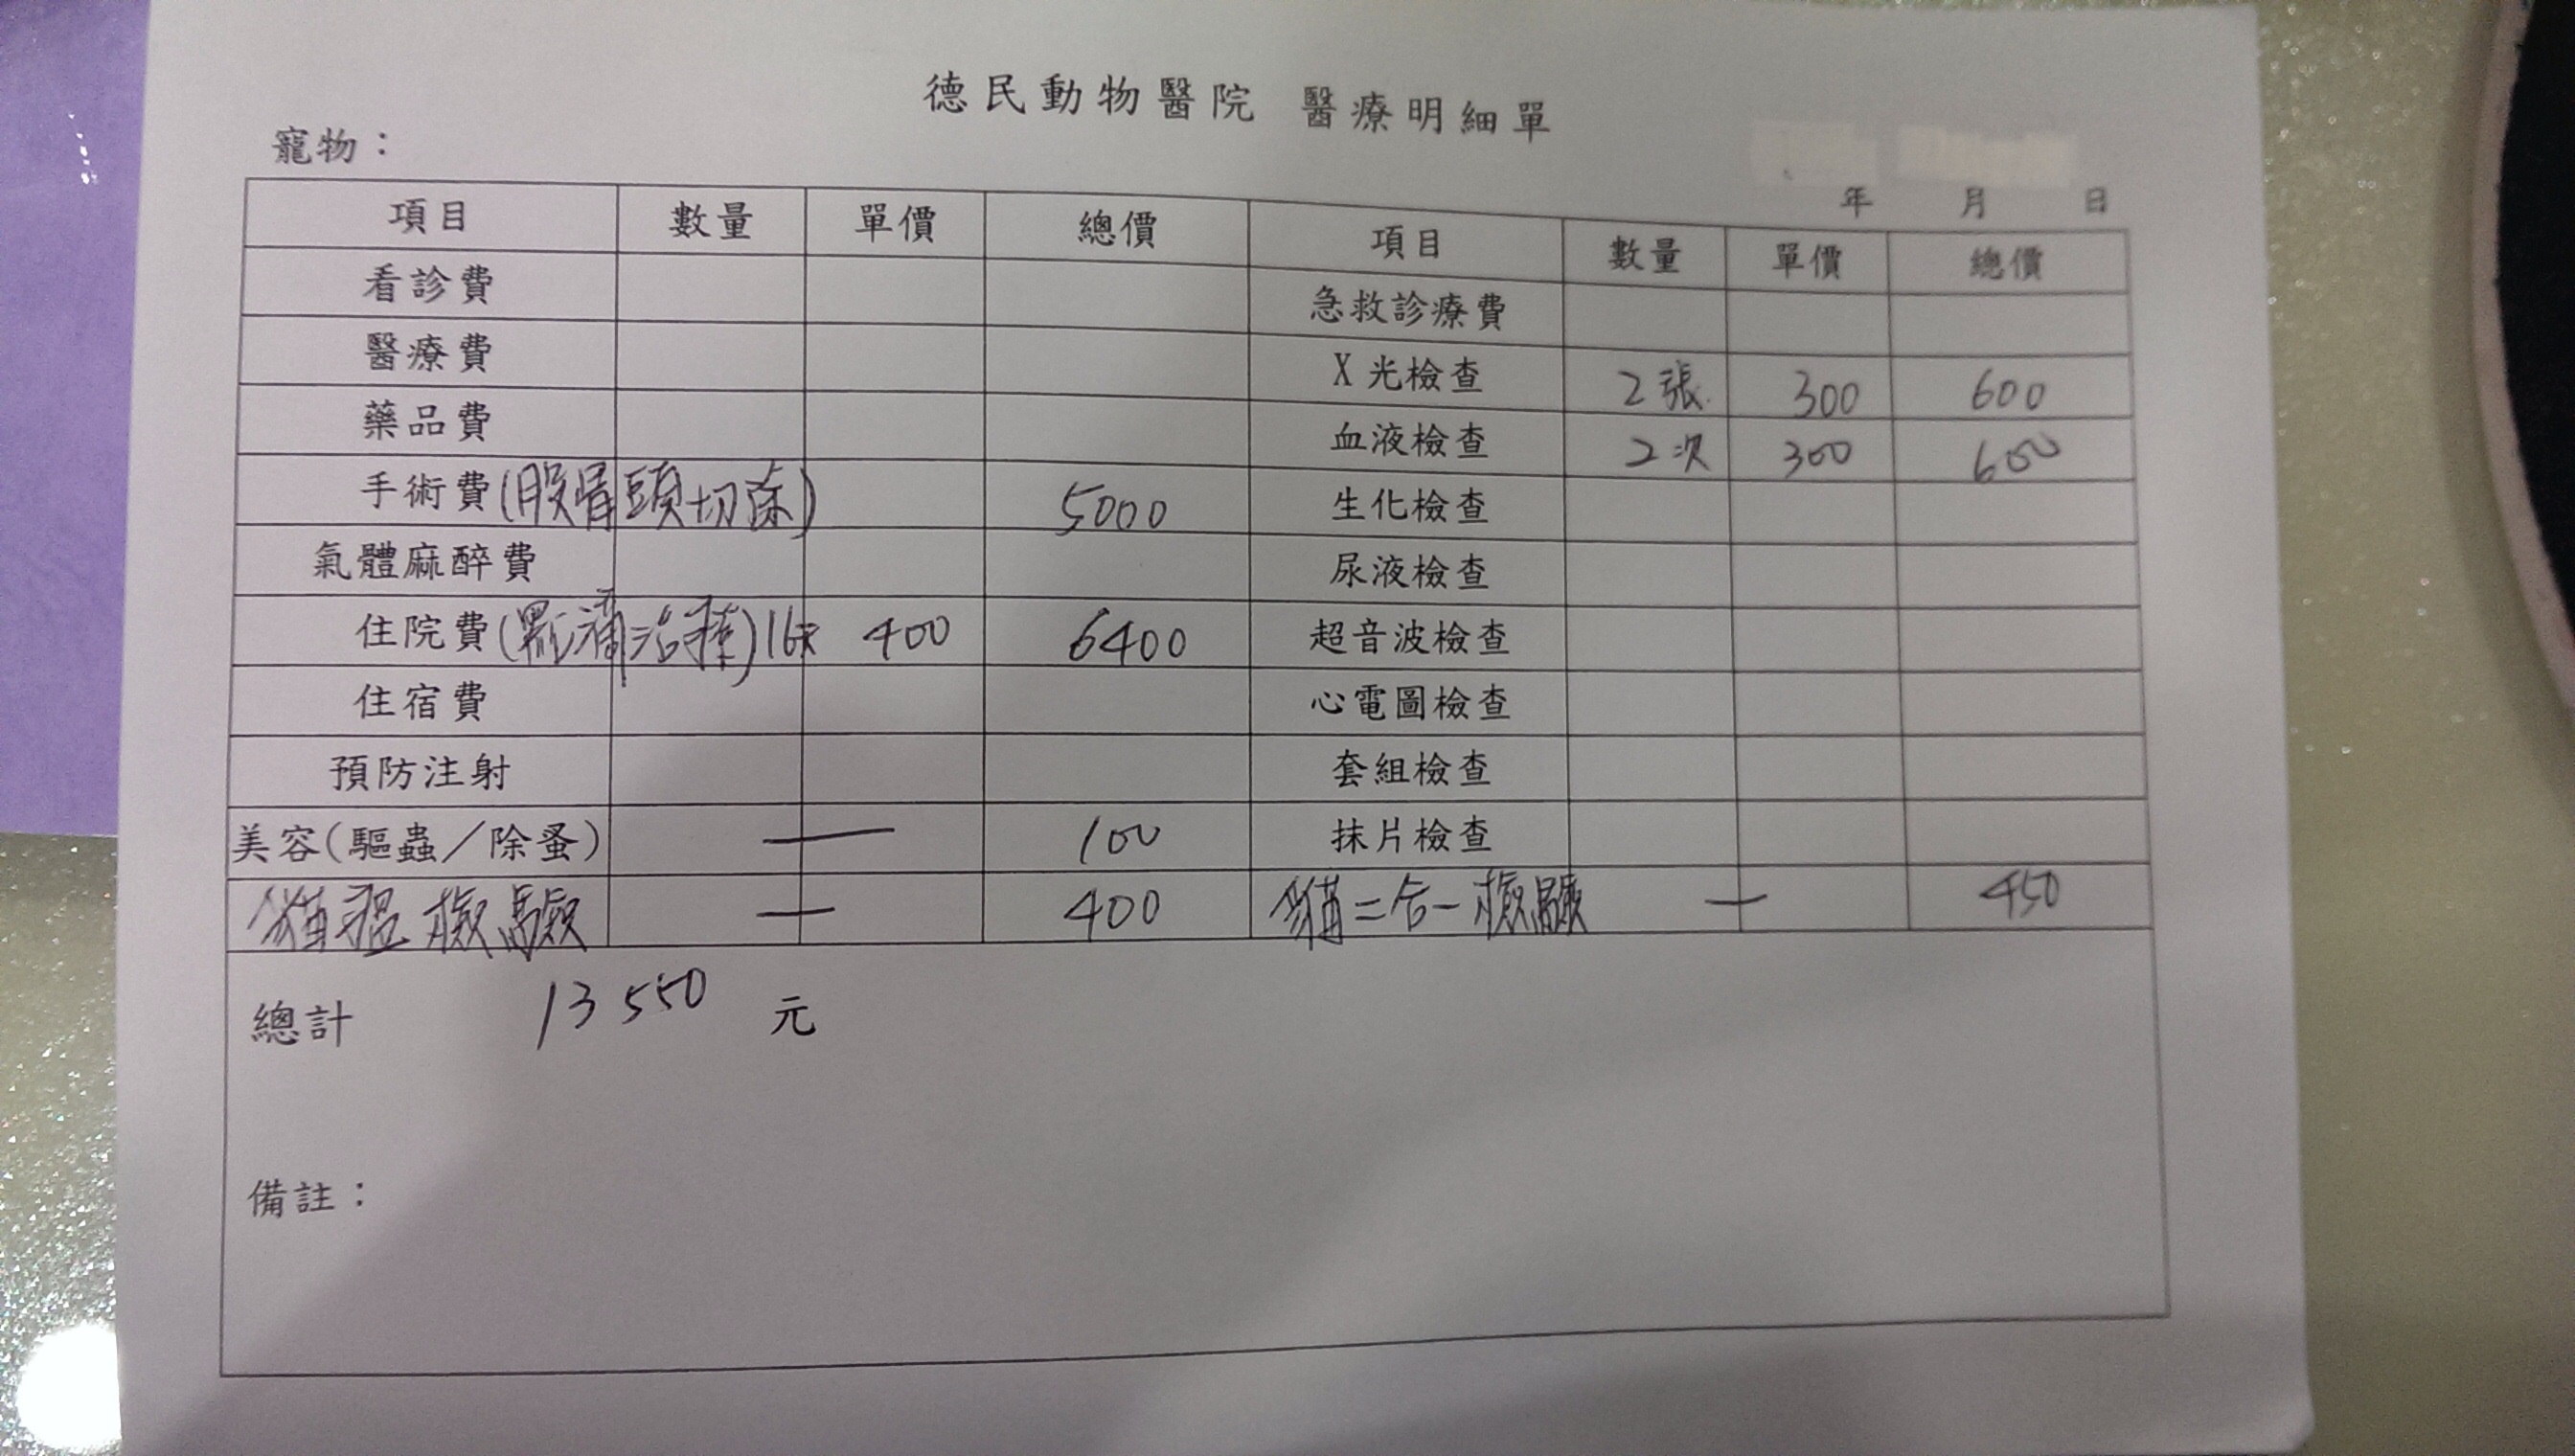 德民動物醫院 醫療明細單
寵物：
年 月 日
項目 數量 單價 總價 項目 數量 單價 總價
看診費 急救診療費
醫療費 X光檢查 2張 300 600
藥品費 血液檢查 2次 300 600
手術費(股骨頭切除) 5000 生化檢查
氣體麻醉費 尿液檢查
住院費(點滴治療)16天 400 6400 超音波檢查
住宿費 心電圖檢查
預防注射 套組檢查
美容(驅蟲/除蚤) — 100 抹片檢查
貓瘟檢驗 — 400 貓二合一檢驗 — 450
總計 13550 元
備註：